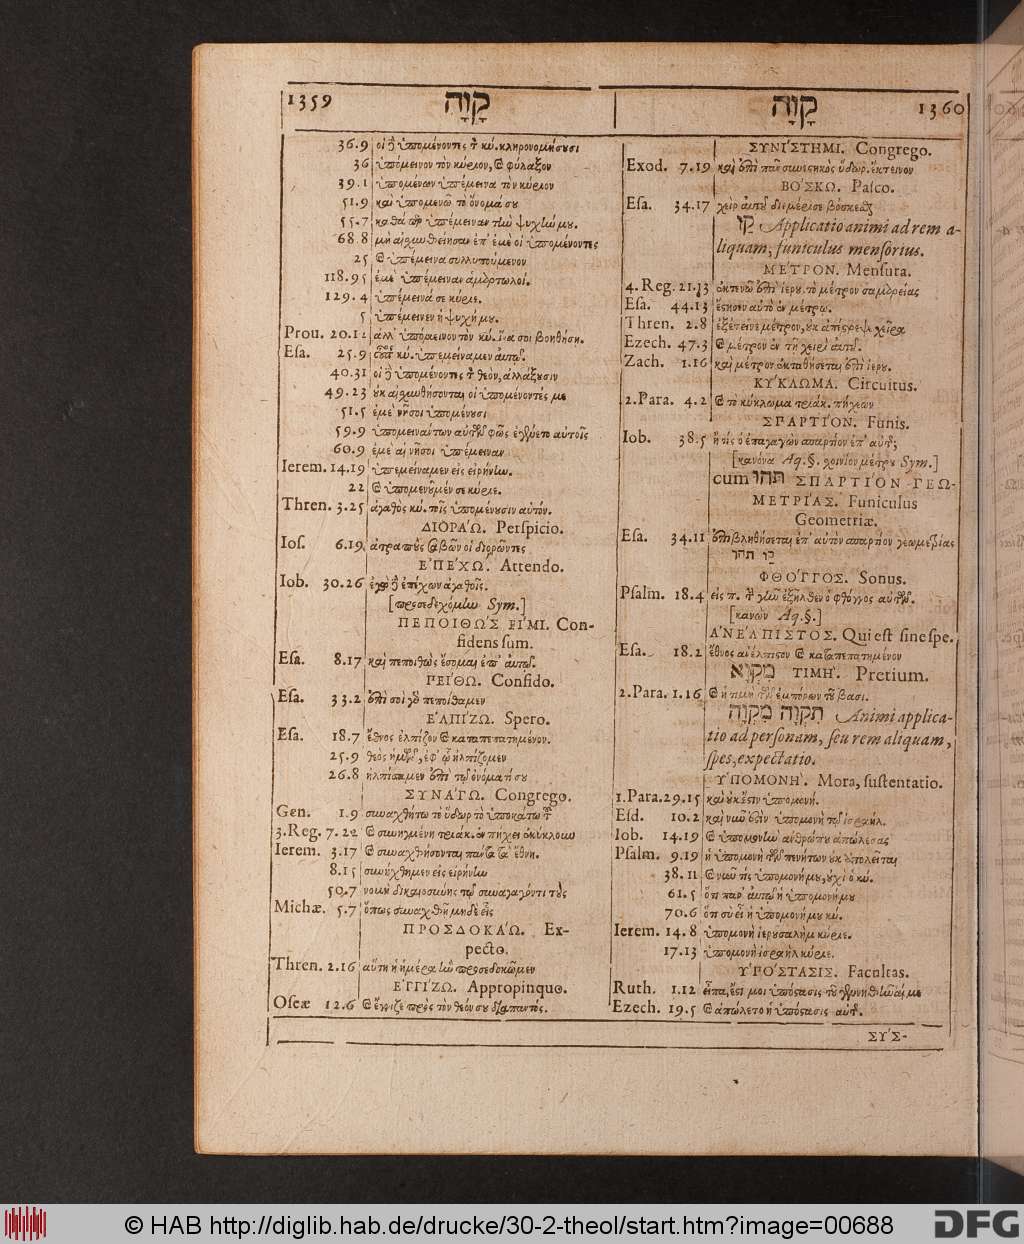 1359 קָוָה
36.9 οἱ δὲ ὑπομένοντες τ κύ. κληρονομήσουσι
36 ὑπόμεινον τὸν κύριον, καὶ φύλαξον
39.1 ὑπομένων ὑπέμεινα τὸν κύριον
51.9 καὶ ὑπομενῶ τὸ ὄνομά σου
55.7 καθάπερ ὑπέμειναν τὴν ψυχήν μου.
68.8 μὴ αἰσχυνθείησαν ἐπ' ἐμὲ οἱ ὑπομένοντες
25 καὶ ὑπέμεινα συλλυπούμενον
118.95 ἐμὲ ὑπέμειναν ἁμαρτωλοί.
129.4 ὑπέμεινά σε κύριε.
5 ὑπέμεινεν ἡ ψυχή μου.
Prou. 20.12 ἀλλ' ὑπόμεινον τὸν κύ. ἵνα σοι βοηθήσῃ.
Esa. 25.9 κύ. ὑπεμείναμεν αὐτῷ.
40.31 οἱ δὲ ὑπομένοντες τ θεὸν, ἀλλάξουσιν
49.23 οὐκ αἰσχυνθήσονται οἱ ὑπομένοντές με
51.5 ἐμὲ νῆσοι ὑπομένουσι
59.9 ὑπομεινάντων αὐτῶν φῶς ἐγένετο αὐτοῖς
60.9 ἐμὲ αἱ νῆσοι ὑπέμειναν
Ierem. 14.19 ὑπεμείναμεν εἰς εἰρήνην.
22 καὶ ὑπομενοῦμέν σε κύριε.
Thren. 3.25 ἀγαθὸς κύ. τοῖς ὑπομένουσιν αὐτόν.
ΔΙΟΡΑΏ. Perſpicio.
Ioſ. 6.19 ἀτραποὺς σαβῶν οἱ διορῶντες
ἘΠΈΧΩ. Attendo.
Iob. 30.26 ἐγὼ δὲ ἐπέχων ἀγαθοῖς.
[προσεδεχόμην Sym.]
ΠΕΠΟΙΘΏΣ ΕἸΜΙ. Con-
fidens ſum.
Eſa. 8.17 καὶ πεποιθὼς ἔσομαι ἐπ' αὐτῷ.
ΠΕΊΘΩ. Confido.
Eſa. 33.2 ἐπὶ σοὶ γὰρ πεποίθαμεν
ἘΛΠΊΖΩ. Spero.
Eſa. 18.7 ἔθνος ἐλπίζον καὶ καταπεπατημένον.
25.9 θεὸς ἡμῶν, ἐφ' ᾧ ἠλπίζομεν
26.8 ἠλπίσαμεν ἐπὶ τῷ ὀνόματί σου
ΣΥΝΆΓΩ. Congrego.
Gen. 1.9 συναχθήτω τὸ ὕδωρ τὸ ὑποκάτω τ
3.Reg. 7.22 καὶ συνηγμένη τριάκ. ἐν πήχει ἐκύκλουν
Ierem. 3.17 καὶ συναχθήσονται πάντα τὰ ἔθνη.
8.15 συνήχθημεν εἰς εἰρήνην
50.7 νομῇ δικαιοσύνης τῷ συναγαγόντι τοὺς
Michæ. 5.7 ὅπως συναχθῇ μηδὲ εἷς
ΠΡΟΣΔΟΚΆΩ. Ex-
pecto.
Thren. 2.16 αὕτη ἡ ἡμέρα ἣν προσεδοκῶμεν
ἘΓΓΊΖΩ. Appropinquo.
Oſeæ 12.6 καὶ ἔγγιζε πρὸς τὸν θεόν σου διαπαντός.
קָוָה 1360
ΣΥΝΊΣΤΗΜΙ. Congrego.
Exod. 7.19 καὶ ἐπὶ πᾶν συνεστηκὸς ὕδωρ. ἔκτεινον
ΒΌΣΚΩ. Paſco.
Eſa. 34.17 χεὶρ αὐτοῦ διεμέρισε βόσκεσθαι
קַו Applicatio animi ad rem a-
liquam, funiculus menſorius.
ΜΈΤΡΟΝ. Menſura.
4.Reg. 21.13 ἐκτενῶ ἐπὶ ἱερου. τὸ μέτρον σαμαρείας
Eſa. 44.13 ἔστησεν αὐτὸ ἐν μέτρῳ.
Thren. 2.8 ἐξέτεινε μέτρον, οὐκ ἀπέστρεψε χεῖρα
Ezech. 47.3 καὶ μέτρον ἐν τῇ χειρὶ αὐτοῦ.
Zach. 1.16 καὶ μέτρον ἐκταθήσεται ἐπὶ ἱερου.
ΚΎΚΛΩΜΑ. Circuitus.
2.Para. 4.2 καὶ τὸ κύκλωμα τριάκ. πήχεων
ΣΠΑΡΤΊΟΝ. Funis.
Iob. 38.5 ἢ τίς ὁ ἐπαγαγὼν σπαρτίον ἐπ' αὐτῆς;
[κανόνα Aq.§. χοινίον μέτρου Sym.]
cum תהו ΣΠΑΡΤΊΟΝ ΓΕΩ-
ΜΕΤΡΊΑΣ. Funiculus
Geometriæ.
Eſa. 34.11 ἐπιβληθήσεται ἐπ' αὐτὸν σπαρτίον γεωμετρίας
קו תהו
ΦΘΌΓΓΟΣ. Sonus.
Pſalm. 18.4 εἰς π. τ γῆν ἐξῆλθεν ὁ φθόγγος αὐτῶν.
[κανὼν Aq.§.]
ἈΝΈΛΠΙΣΤΟΣ. Qui eſt ſine ſpe.
Eſa. 18.2 ἔθνος ἀνέλπιστον καὶ καταπεπατημένον
מִקְוֵא ΤΙΜΉ. Pretium.
2.Para. 1.16 καὶ ἡ τιμὴ τῶν ἐμπόρων τοῦ βασι.
תִקְוָה מִקְוֶה Animi applica-
tio ad perſonam, ſeu rem aliquam,
ſpes, expectatio.
ὙΠΟΜΟΝΉ. Mora, ſuſtentatio.
1.Para. 29.15 καὶ οὐκ ἔστιν ὑπομονή.
Eſd. 10.2 καὶ νῦν ἐστὶν ὑπομονὴ τῷ ἰσραήλ.
Iob. 14.19 καὶ ὑπομονὴν ἀνθρώπου ἀπώλεσας
Pſalm. 9.19 ἡ ὑπομονὴ τῶν πενήτων οὐκ ἀπολεῖται
38.11 καὶ νῦν τίς ἡ ὑπομονή μου, οὐχὶ ὁ κύ.
61.5 ὅτι παρ' αὐτῷ ἡ ὑπομονή μου
70.6 ὅτι σὺ εἶ ἡ ὑπομονή μου κύ.
Ierem. 14.8 ὑπομονὴ ἱερουσαλὴμ κύριε.
17.13 ὑπομονὴ ἰσραὴλ κύριε.
ὙΠΌΣΤΑΣΙΣ. Facultas.
Ruth. 1.12 εἶπα, ἔστι μοι ὑπόστασις τοῦ γενηθῆναί με
Ezech. 19.5 καὶ ἀπώλετο ἡ ὑπόστασις αὐτῆς.
ΣΎΣ-
© HAB http://diglib.hab.de/drucke/30-2-theol/start.htm?image=00688
DFG